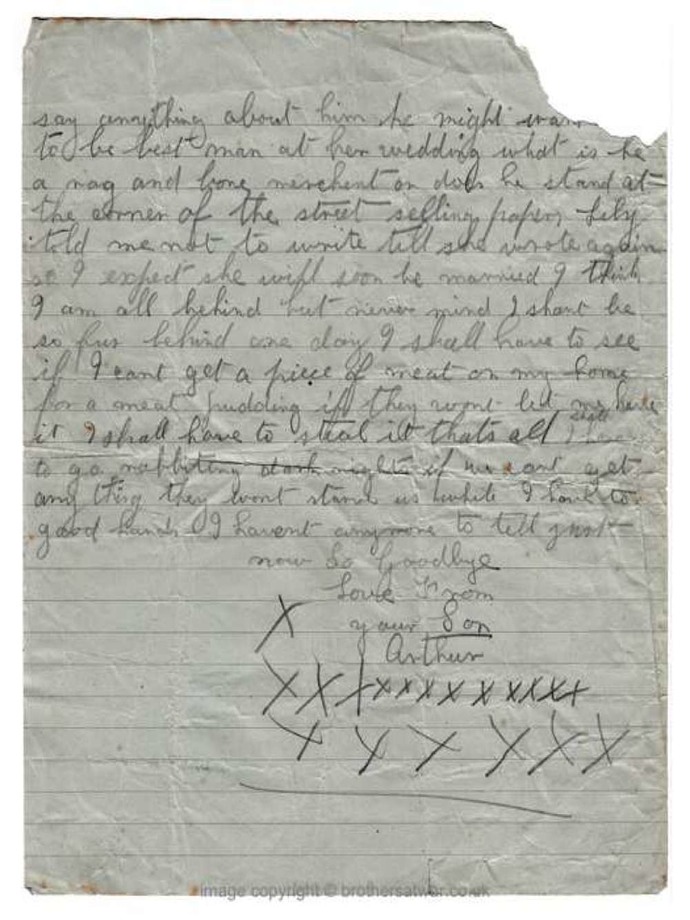 say anything about him he might wan
to be best man at her wedding what is he
a rag and bone merchent or does he stand at
the corner of the street selling papers Lily
told me not to write till she wrote again
so I expect she will soon be married I think
I am all behind but never mind I shant be
so far behind one day I shall have to see
if I cant get a piece of meat on my home
for a meat pudding if they wont let me have
it I shall have to steal it thats all I shall have
to go rabbiting dark nights if we cant get
any thing they wont starve us while I have to
good hands I havent anymore to tell just
now So Goodbye
Love From
X your Son
Arthur
X X X x x x x x x x x x
X X X X X X
image copyright © brothersatwar.co.uk